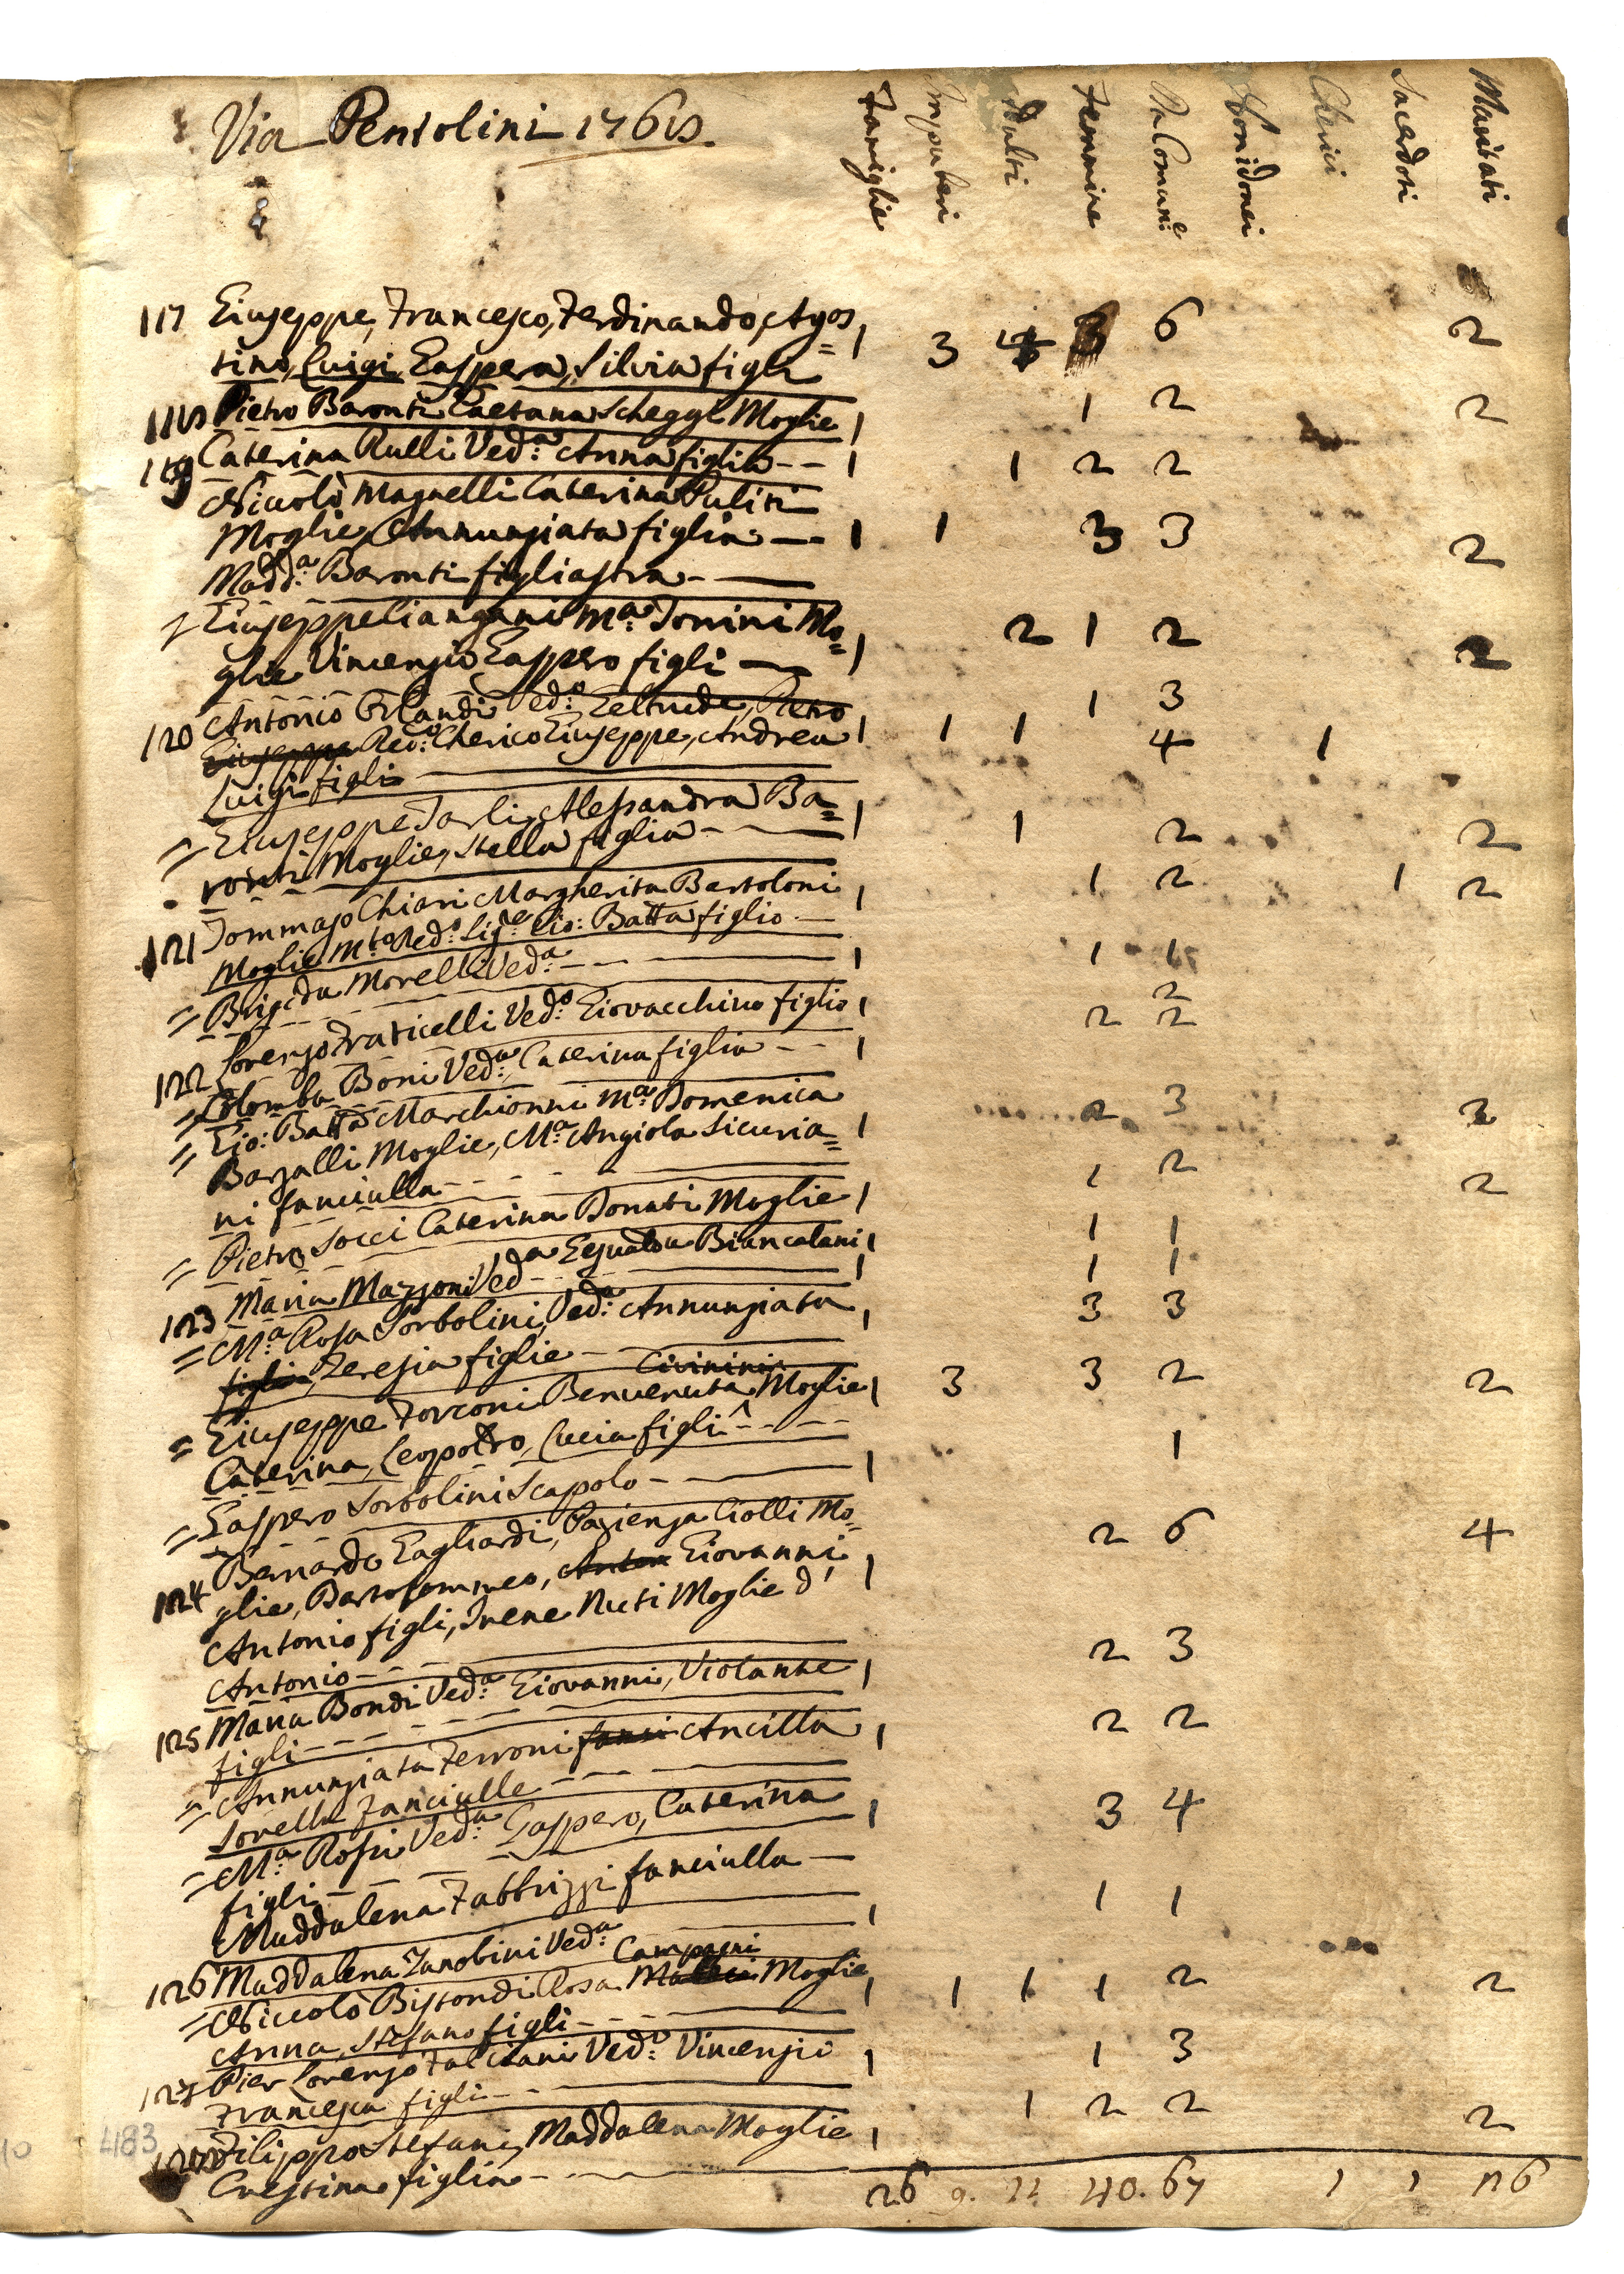 Via Pentolini 1768
Famiglie Impuberi Adulti Femmine Da Comun:e Non idonei Clerici Sacerdoti Maritati
117 Giuseppe, Francesco, Ferdinando, Agos= 1 3 4 6 2
tino, Luigi, Gaspera, Silvia figli
118 Pietro Baronti Gaetana Scheggi Moglie 1 1 2 2
119 Caterina Rulli Ved:a Anna figlia -- 1 1 2 2
Niccolò Magnelli Caterina Puliti
Moglie, Annunziata figlia -- 1 1 3 3 2
Madd:a Baronti figliastra --
Giuseppe Ciangani M:a Tonini Mo= 1 2 1 2 2
glie Vincenzio Gaspero figli --
120 Antonio Orlandi Ved:o Geltrude, Pietro 1 3
Giuseppe Red:o Cherico Giuseppe, Andrea 1 1 1 4 1
Luigi figli
= Giuseppe Tarli, Alessandra Ba= 1 1 2 2
ronti Moglie, Stella figlia --
121 Tommaso Chiari Margherita Bartoloni 1 1 2 1 2
Moglie M:to Red:o Sig:re Gio: Batta figlio --
= Brigida Morelli Ved:a -- 1 1 1
122 Lorenzo Fraticelli Ved:o Giovacchino figlio 1 2
= Colomba Boni Ved:a, Caterina figlia -- 1 2 2
= Gio: Batta Marchionni M:a Domenica 2 3 2
Barzalli Moglie, M:a Angiola Sicuria= 1
ni fanciulla --
= Pietro Socci Caterina Donati Moglie 1 1 2 2
123 Maria Mazzoni Ved:a Egualda Biancalani 1 1 1
= M:a Rosa Sorbolini, Ved:a Annunziata 1 3 3
figlia, Teresia figlie --
Civinini
= Giuseppe Forconi Benvenuta Moglie 1 3 3 2 2
Caterina, Leopoldo, Lucia figli --
= Gaspero Sorbolini Scapolo -- 1 1
124 Bernardo Gagliardi, Pazienza Ciolli Mo= 2 6 4
glie, Bartolommeo, Anton Giovanni 1
Antonio figli, Irene Nuti Moglie d'
Antonio --
125 Maria Bondi Ved:a Giovanni, Violante 1 2 3
figli --
= Annunziata Ferroni fanci Ancilla 1 2 2
Sorelle fanciulle --
= M:a Rosa Ved:a Gaspero, Caterina 1 3 4
figli --
Maddalena Fabbrizzi fanciulla --
126 Maddalena Zanobini Ved:a 1 1 1
Campagni
= Niccolò Bistondi Rosa Moglie 1 1 1 1 2 2
Anna, Stefano figli --
127 Pier Lorenzo Falciani Ved:o Vincenzio 1 1 3
Francesca figli --
128 Filippo Stefani, Maddalena Moglie 1 1 2 2 2
Crestina figlia --
26 9. 12 40. 67 1 1 26
483